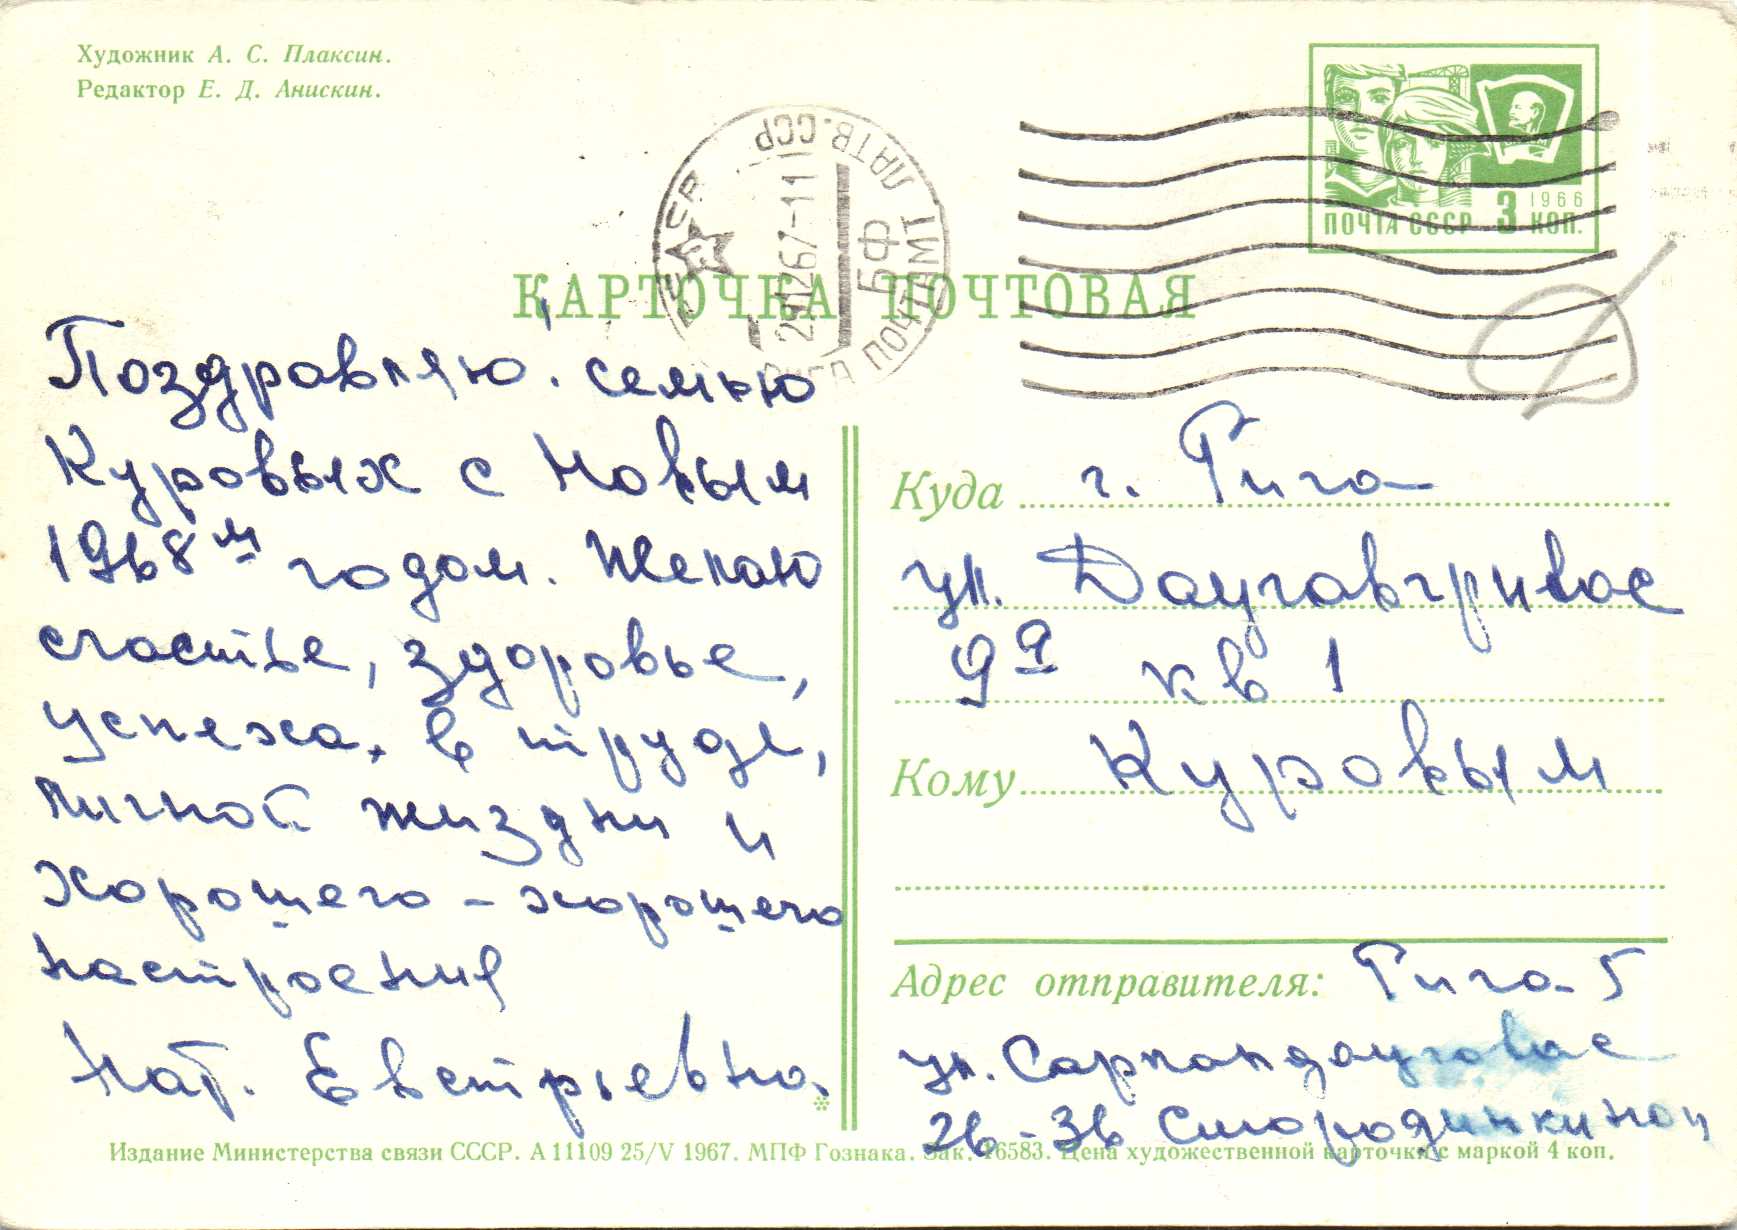 Художник А. С. Плаксин.
Редактор Е. Д. Анискин.
1966
ПОЧТА СССР 3 КОП.
СССР
ЛАТВ. ССР
291267-11
БФ
РИГА ПОЧТАМТ
КАРТОЧКА ПОЧТОВАЯ
Поздравляю семью
Куровых с Новым
1968м годом. Желаю
счастье, здоровье,
успеха в труде,
личной жиздни и
хорошего - хорошего
настроения
Нат. Евстрьевна.
Куда г. Рига
ул. Даугавгривас
9а кв 1
Кому Куровым
Адрес отправителя: Рига-5
ул. Сарпандаугавас
26-36 Смородинкиной
Издание Министерства связи СССР. А 11109 25/V 1967. МПФ Гознака. Зак. 16583. Цена художественной карточки с маркой 4 коп.